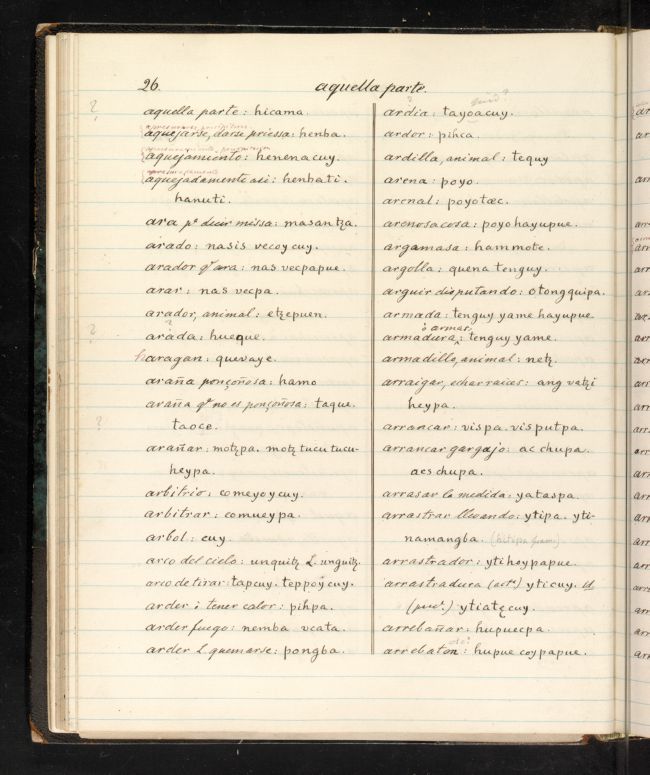 26.
aquella parte.
aquella parte: hicama.
aquejarse, darse priessa: henba.
aquejamiento: henenacuy.
aquejadamente asi: henbati.
hanuti.
ara pa decir missa: masantza.
arado: nasis vecoycuy.
arador q ara: nas vecpapue.
arar: nas vecpa.
arador, animal: etzepuen.
?
arada: hueque.
haragan: quevaye.
araña ponçoñosa: hamo
araña q no es ponçoñosa: taque.
taoce.
arañar: motzpa. motz tucu tucu-
heypa.
arbitrio: comeyoycuy.
arbitrar: comueypa.
arbol: cuy.
arco del cielo: unquitz l. unguitz.
arco de tirar: tapcuy. teppoy cuy.
arder i tener calor: pihpa.
arder fuego: nemba vcata.
arder l quemarse: pongba.
?
ardia: tayoacuy.
ardor: pihca.
ardilla, animal: tequy
arena: poyo.
arenal: poyotæc.
arenosa cosa: poyohayupue.
argamasa: hammote.
argolla: quena tenguy.
arguir disputando: otongquipa.
armada: tenguy yame hayupue
ò armas
armadura: tenguy yame.
armadillo, animal: netz.
arraigar, echar raices: ang vatzi
heypa.
arrancar: vispa. visputpa.
arrancar gargajo: ac chupa.
acs chupa.
arrasar la medida: yataspa.
arrastrar llevando: ytipa. yti-
namangba.
arrastrador: ytihoypapue.
arrastradura (act.) yticuy. id
ytiatęcuy.
arrebañar: hupuecpa.
do?
arrebaton: hupue coypapue.